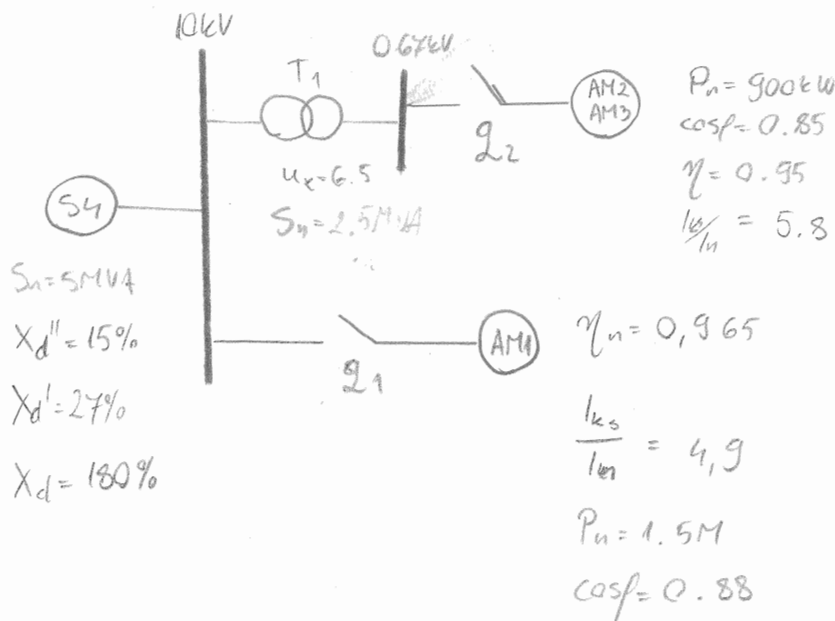 10kV
T1
0.67kV
AM2
AM3
Q2
Pn = 900kW
cosρ = 0.85
η = 0.95
Ik/In = 5.8
ux = 6.5
Sn = 2.5MVA
S4
Sn = 5MVA
Xd'' = 15%
Xd' = 27%
Xd = 180%
Q1
AM1
ηn = 0,965
Iks/Im = 4,9
Pn = 1.5M
cosρ = 0.88